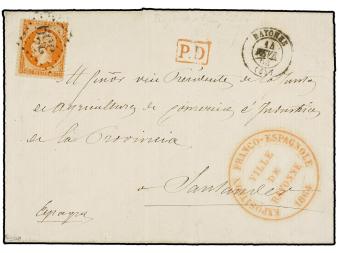 P.D.
BAYONNE
Al Señor vice Presidente de la Junta
de agricultura de comercio e Industria
de la Provincia
a Santander
Espagne
EXPOSITION FRANCO-ESPAGNOLE
VILLE
DE
BAYONNE
1864